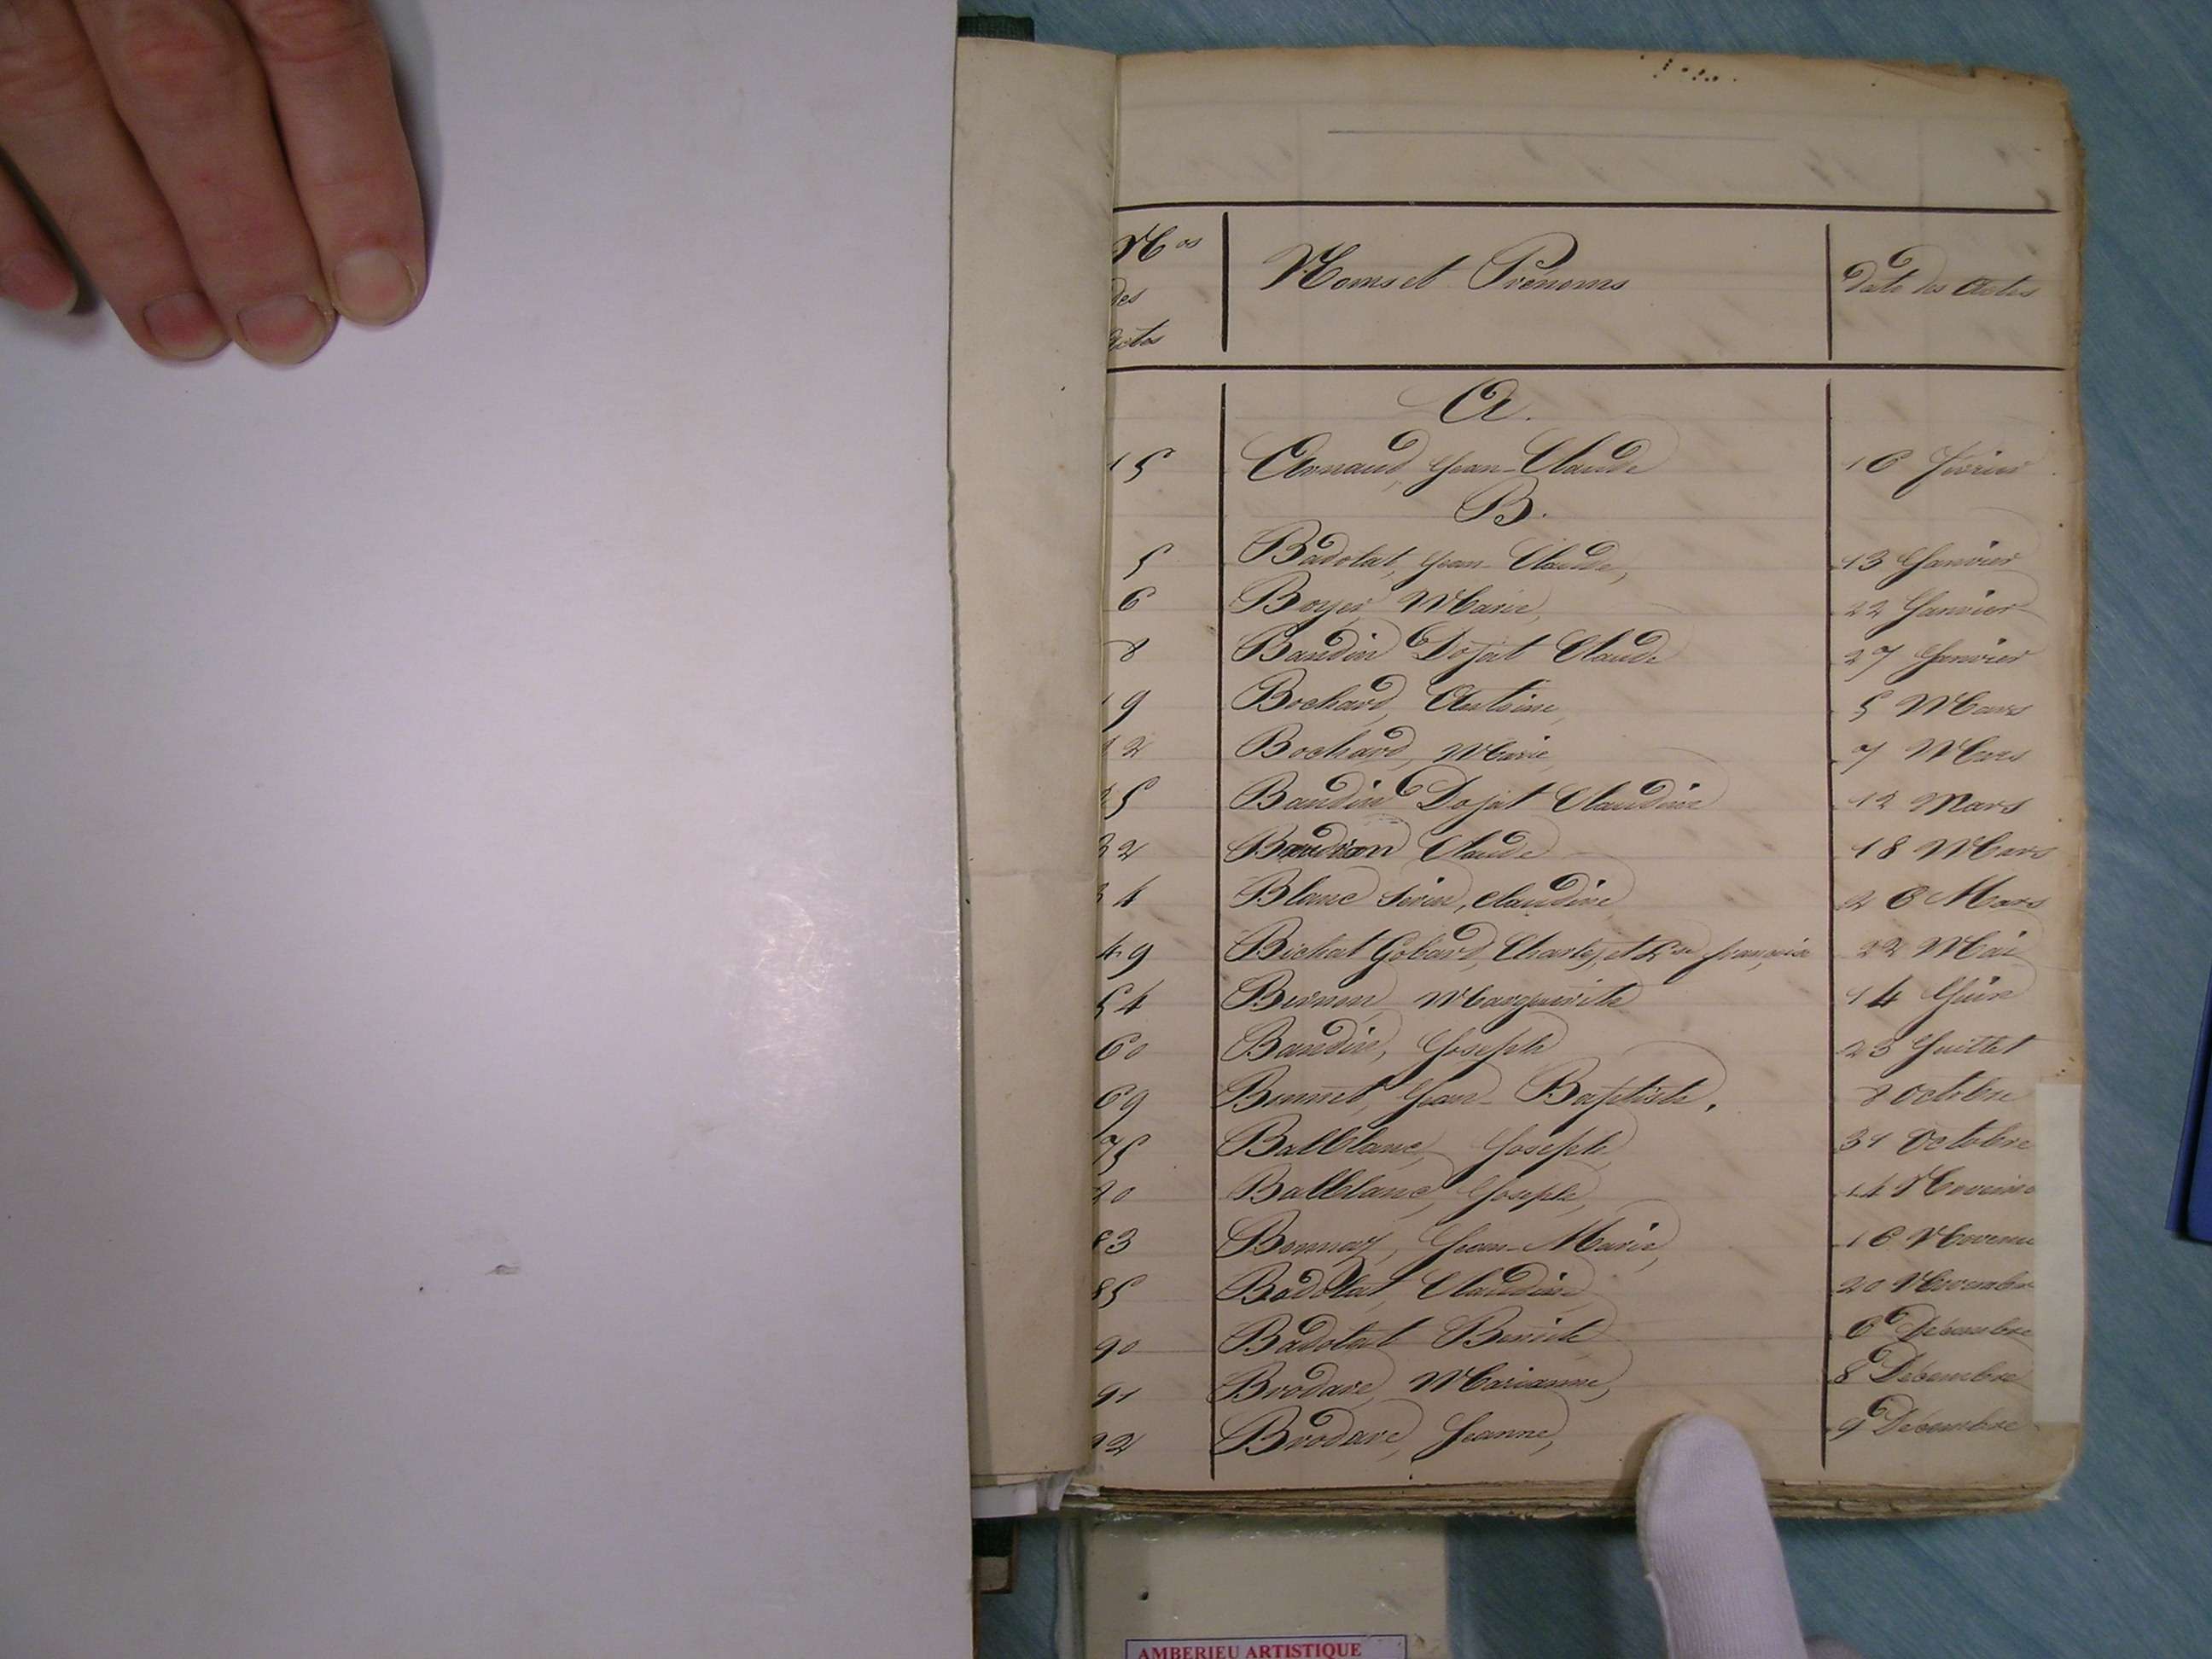 Nos Noms et Prénoms Date des Actes
des
Actes
A.
15 Arnaud, Jean-Claude 16 Février
B.
5 Badolat, Jean-Claude, 13 Janvier
6 Boyer, Marie, 22 Janvier
8 Baudin Dojat Claude 27 Janvier
19 Bochard, Antoine, 5 Mars
22 Bochard, Marie, 7 Mars
25 Baudin Dojat Claudine 12 Mars
32 Claude 18 Mars
34 Blanc Claudine 26 Mars
49 Bichat Gobard, Charles, et françoise 22 Mai
54 Bernon, Marguerite 14 Juin
60 Baudin, Joseph 23 Juillet
69 Brunet, Jean-Baptiste, 8 octobre
75 Balblanc, Joseph, 31 Octobre
80 Balblanc, Joseph, 14
83 Bonnaz, Jean-Marie, 16
85 Badolat, Claudine 20 Novembre
90 Badolat Benoite 6 Décembre
91 Brodare, Marianne, 8 Décembre
92 Brodare, Jeanne, 9 Décembre
AMBERIEU ARTISTIQUE